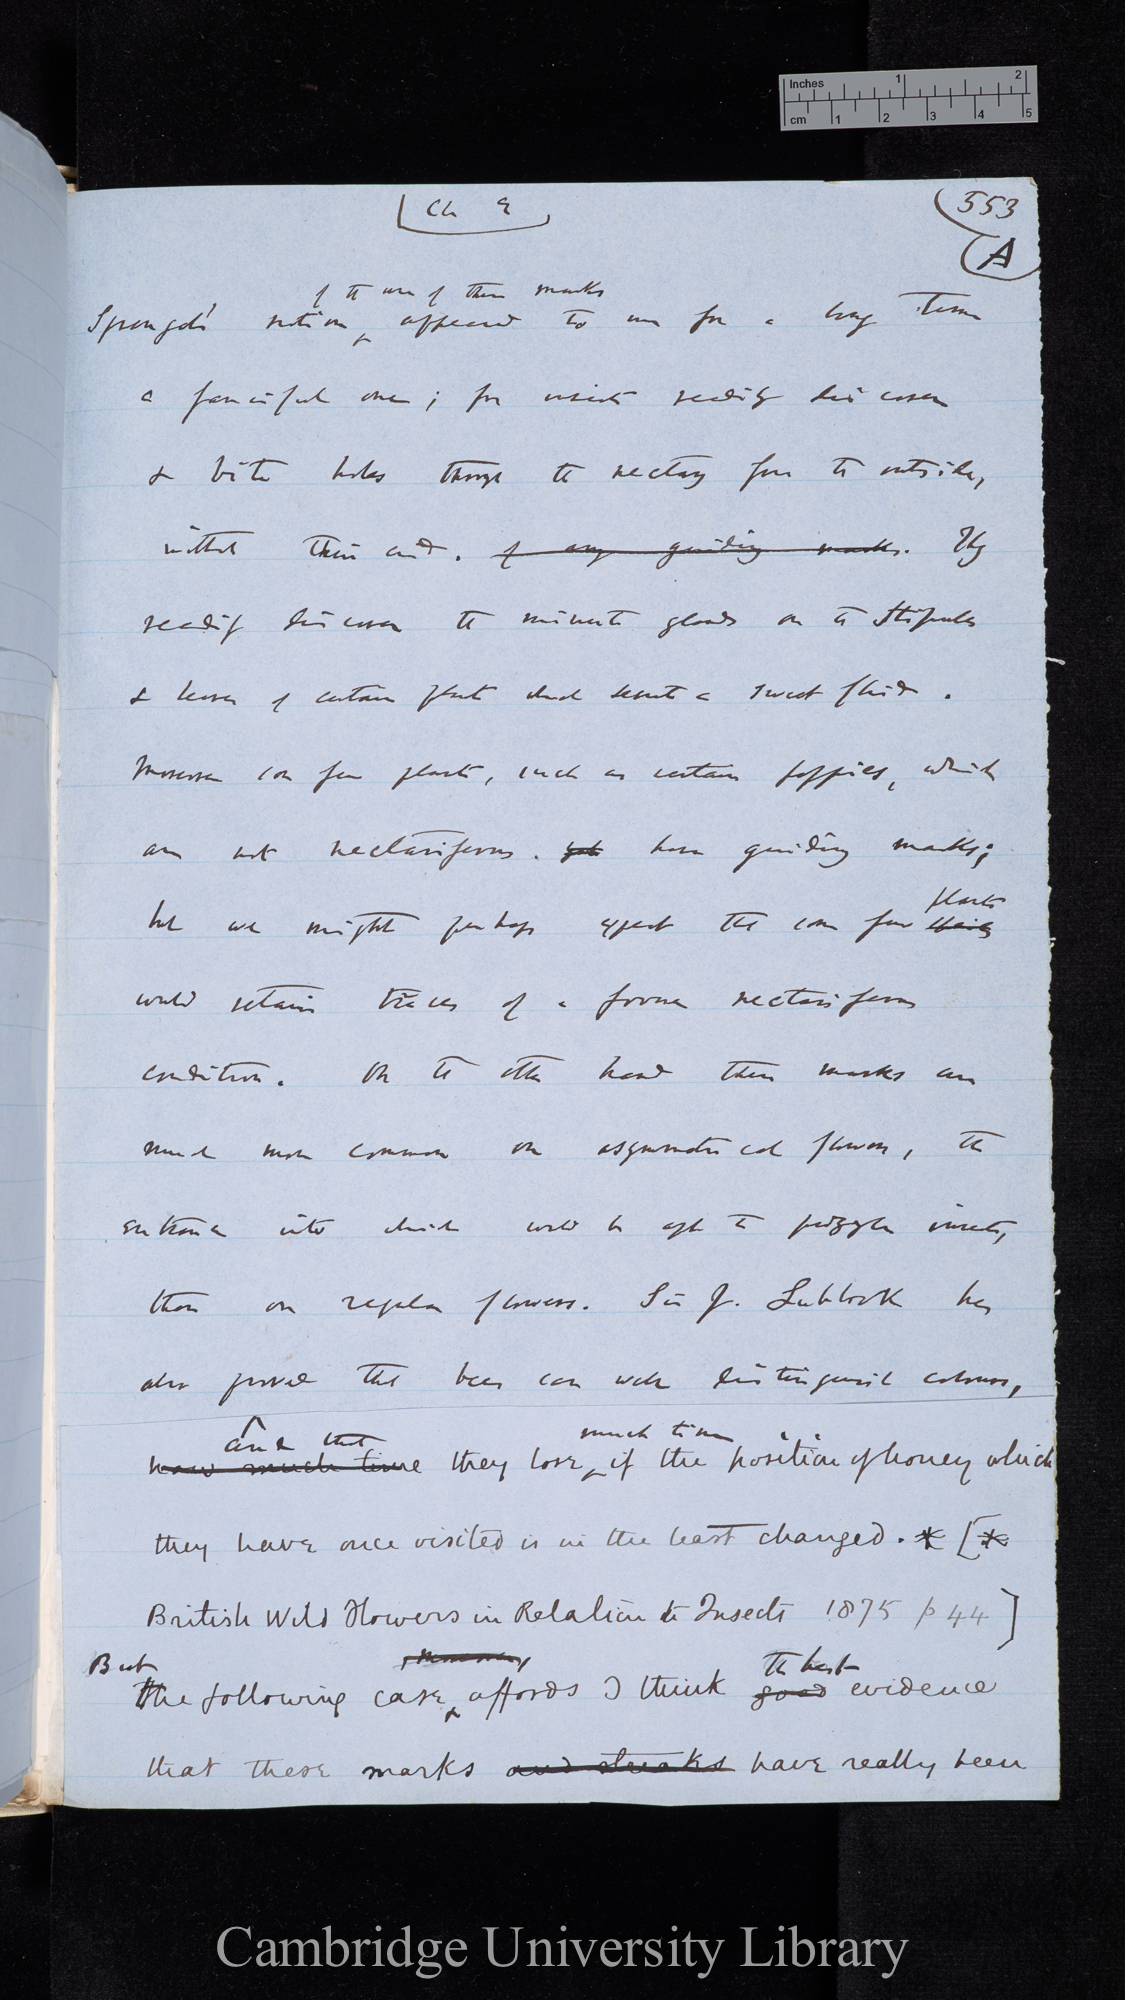 Inches 1 2
cm 1 2 3 4 5
Ch 9
553
A
of the use of these marks
Sprengel's notion appeared to me for a long time
a fanciful one; for insects readily discover
& bite holes through the nectary from the outside,
without their aid. of any guiding marks. They
readily discover the minute glands on the stipules
& leaves of certain plants which secrete a sweet fluid.
Moreover some few plants, such as certain poppies, which
are not nectariferous. yet have guiding marks;
plants
but we might perhaps expect that some few
would retain traces of a former nectariferous
condition. On the other hand these marks are
much more common on asymmetrical flowers, the
entrance into which would be apt to puzzle insects,
than on regular flowers. Sir J. Lubbock has
also proved that bees can well distinguish colours,
and that much time
how much time they lose if the position of honey which
they have once visited is in the least changed. * [*
British Wild Flowers in Relation to Insects 1875 p 44]
But , moreover, the best
The following case affords I think good evidence
that these marks and streaks have really been
Cambridge University Library